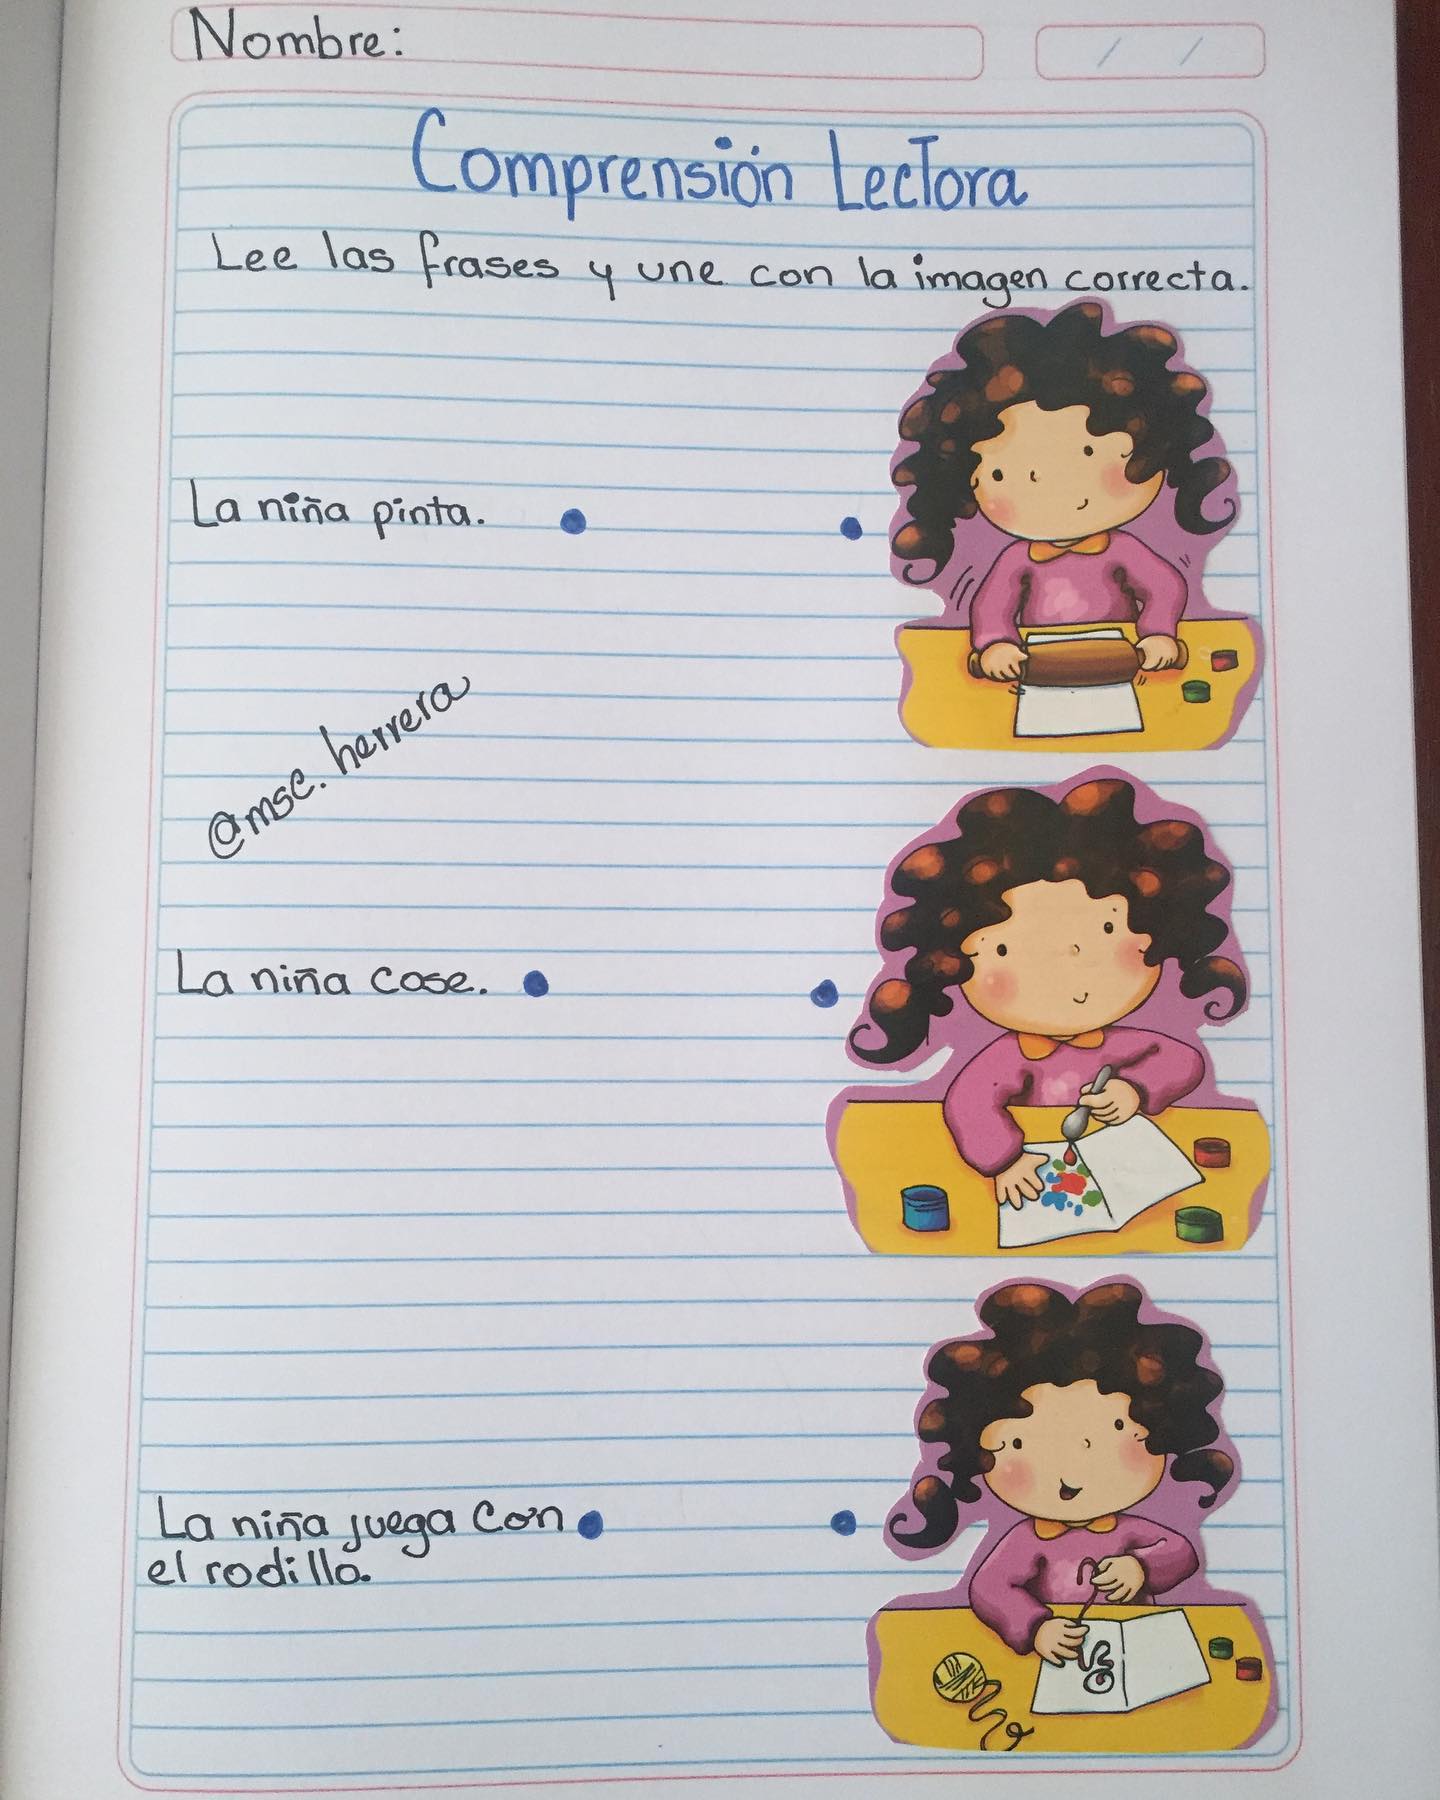 Nombre:
/ /
Comprensión Lectora
Lee las frases y une con la imagen correcta.
La niña pinta.
@msc.herrera
La niña cose.
La niña juega con
el rodillo.